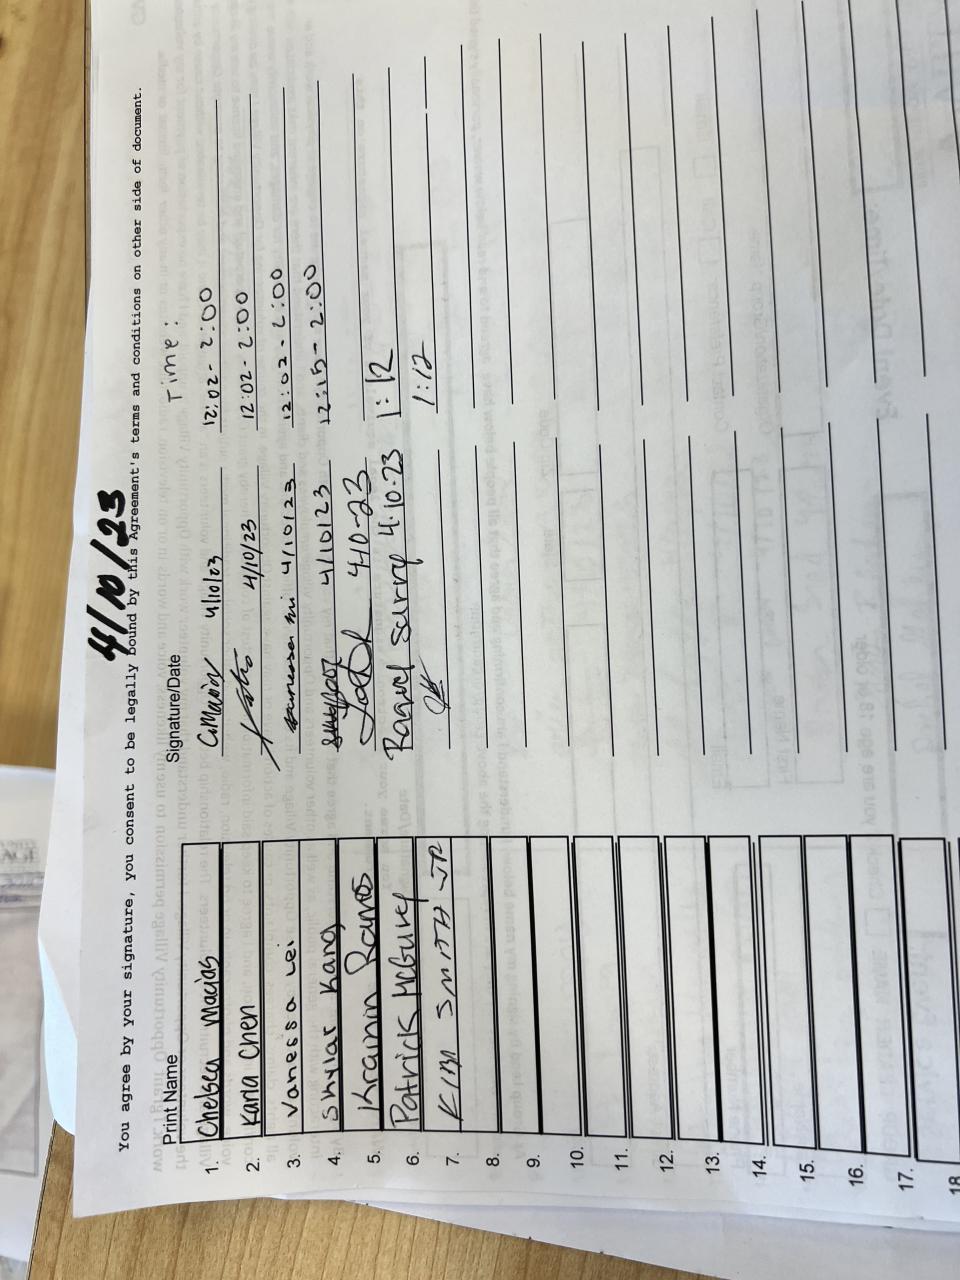 4/10/23
You agree by your signature, you consent to be legally bound by this Agreement's terms and conditions on other side of document.
Print Name Signature/Date Time:
1. Chelsea Macias 4/10/23 12:02 - 2:00
2. Karla Chen 4/10/23 12:02 - 2:00
3. Vanessa Lei 4/10/23 12:02 - 2:00
4. Shylar Kang 4/10/23 12:15 - 2:00
5. Krainin Ramos 4-10-23
6. Patrick McGurey 4.10.23 1:12
7. KIM SMITH JR 1:12
8.
9.
10.
11.
12.
13.
14.
15.
16.
17.
18